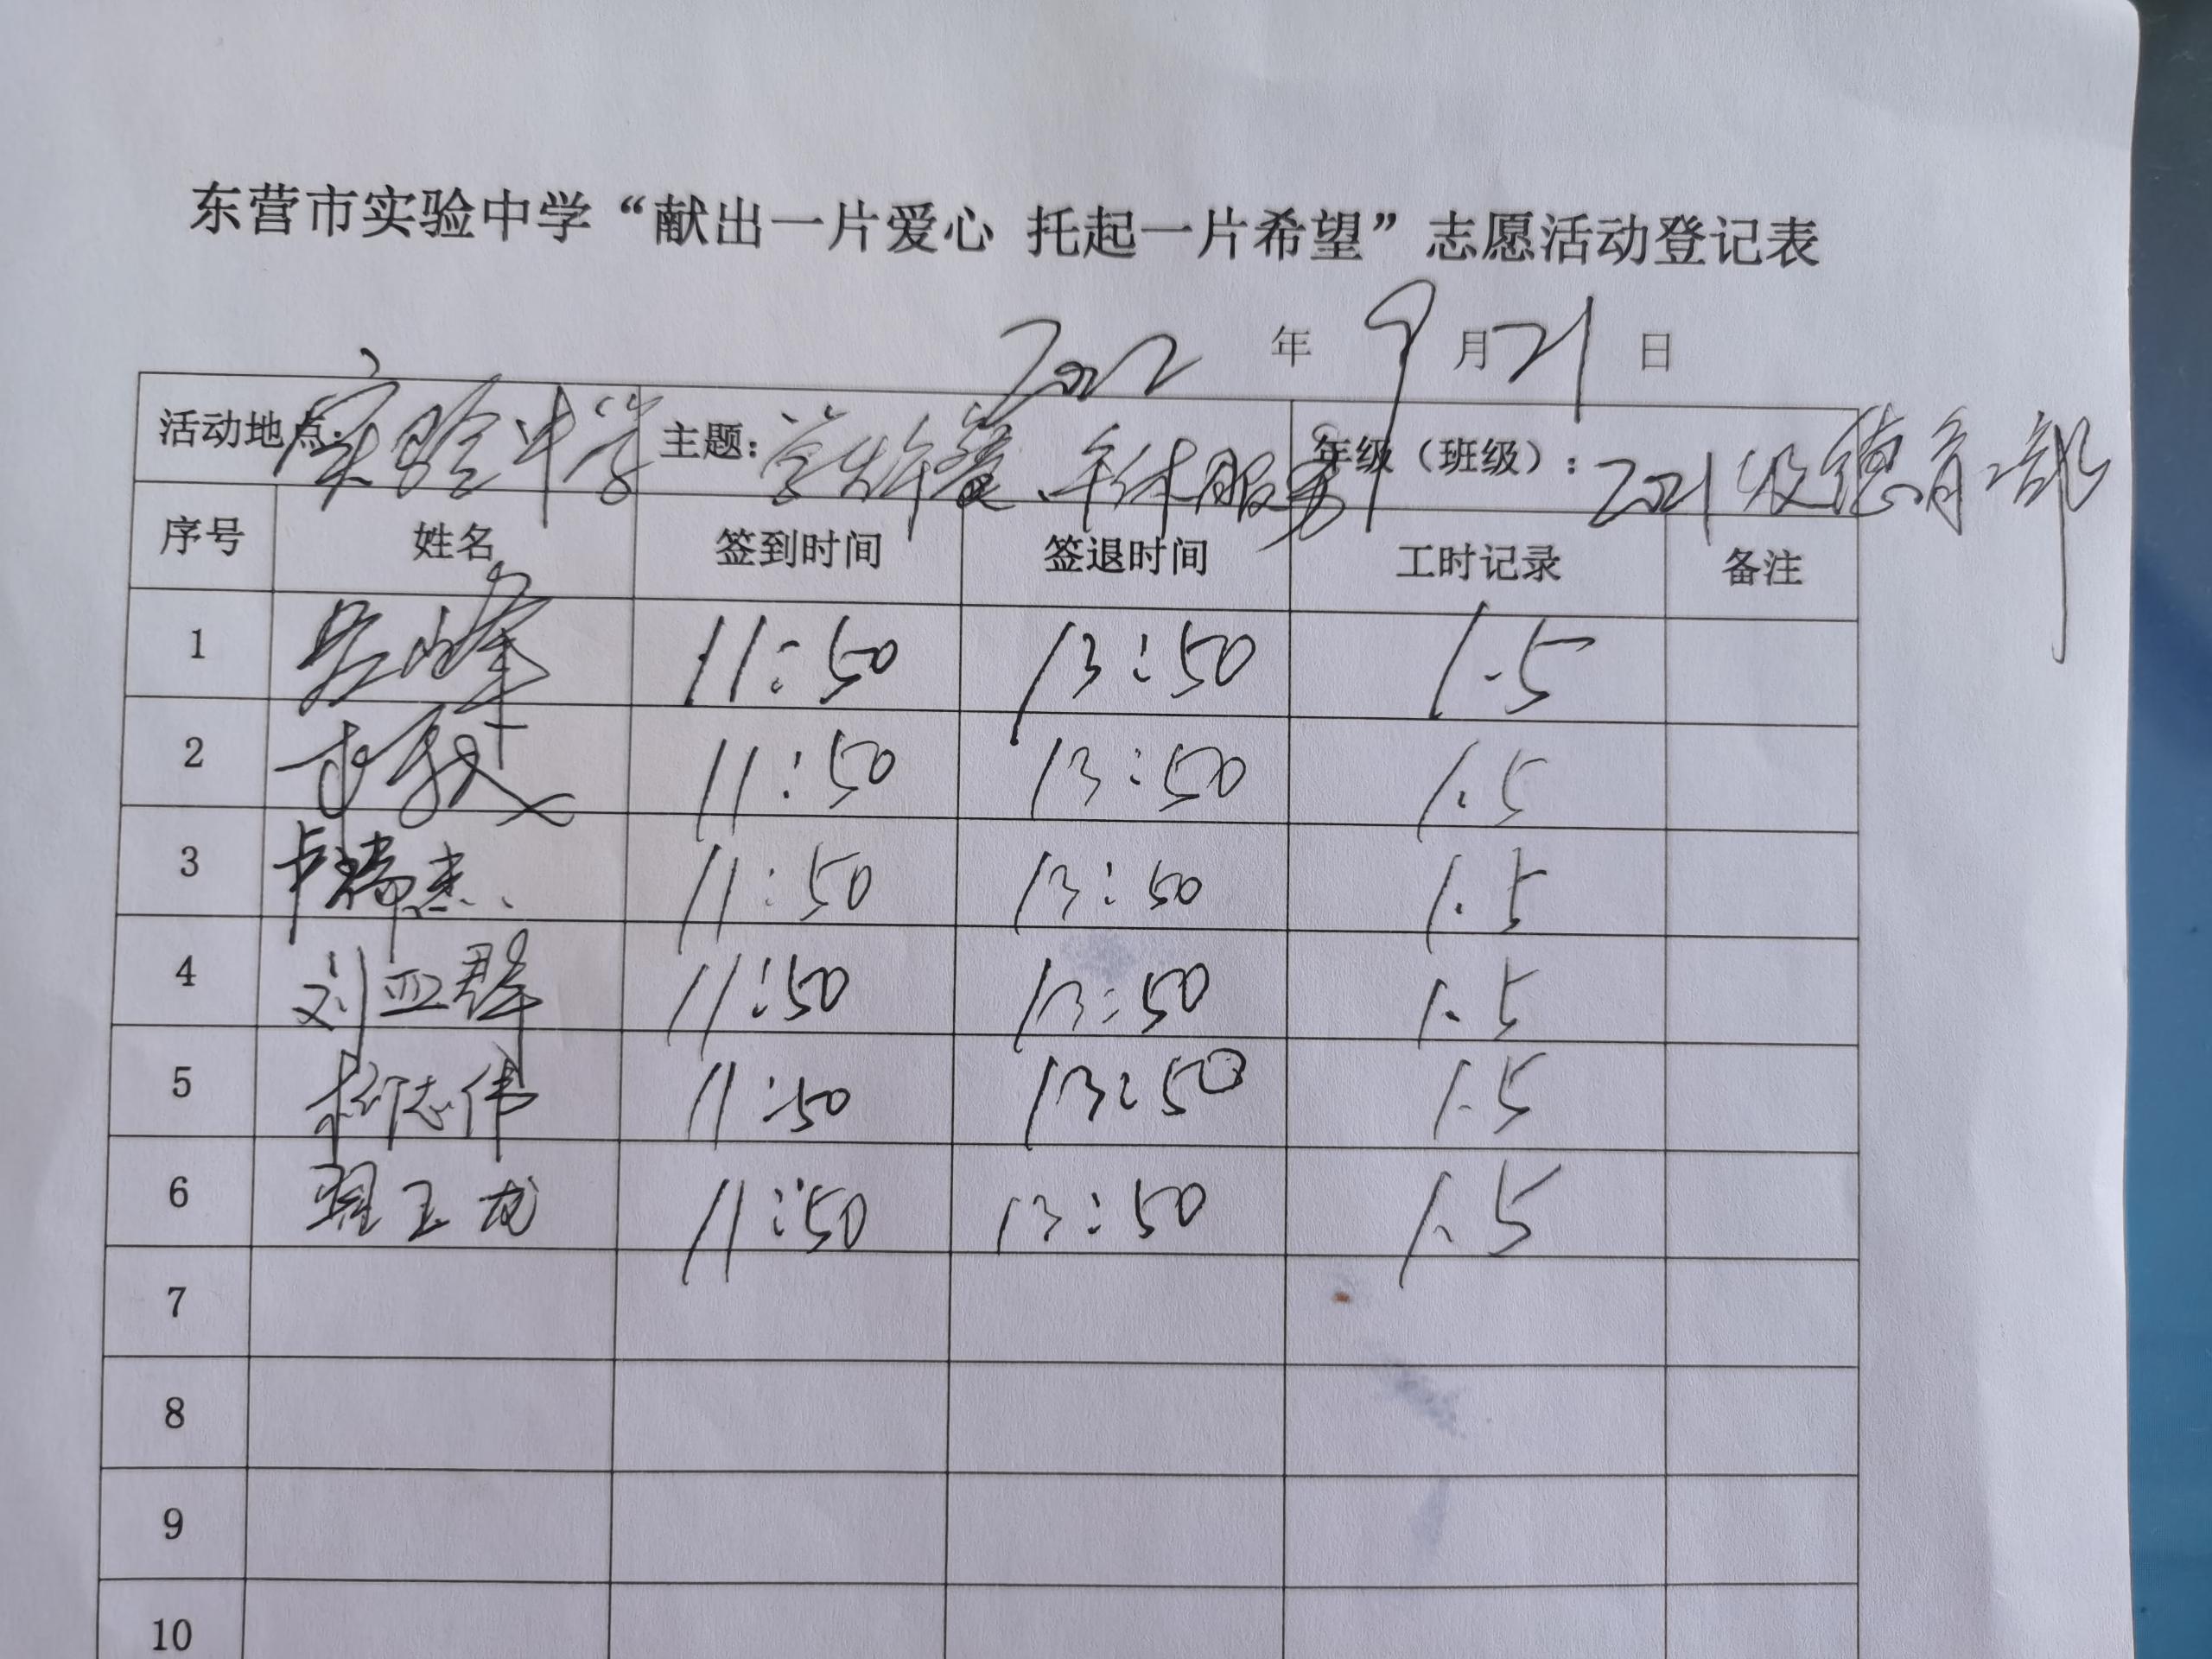 东营市实验中学“献出一片爱心 托起一片希望”志愿活动登记表
2022 年 9 月 21 日
活动地点：实验中学 主题：学生午餐、午休服务 年级（班级）：2021级德育部
序号 姓名 签到时间 签退时间 工时记录 备注
1 11:50 13:50 1.5
2 11:50 13:50 1.5
3 卞瑞杰 11:50 13:50 1.5
4 刘亚群 11:50 13:50 1.5
5 志伟 11:50 13:50 1.5
6 翟玉龙 11:50 13:50 1.5
7
8
9
10